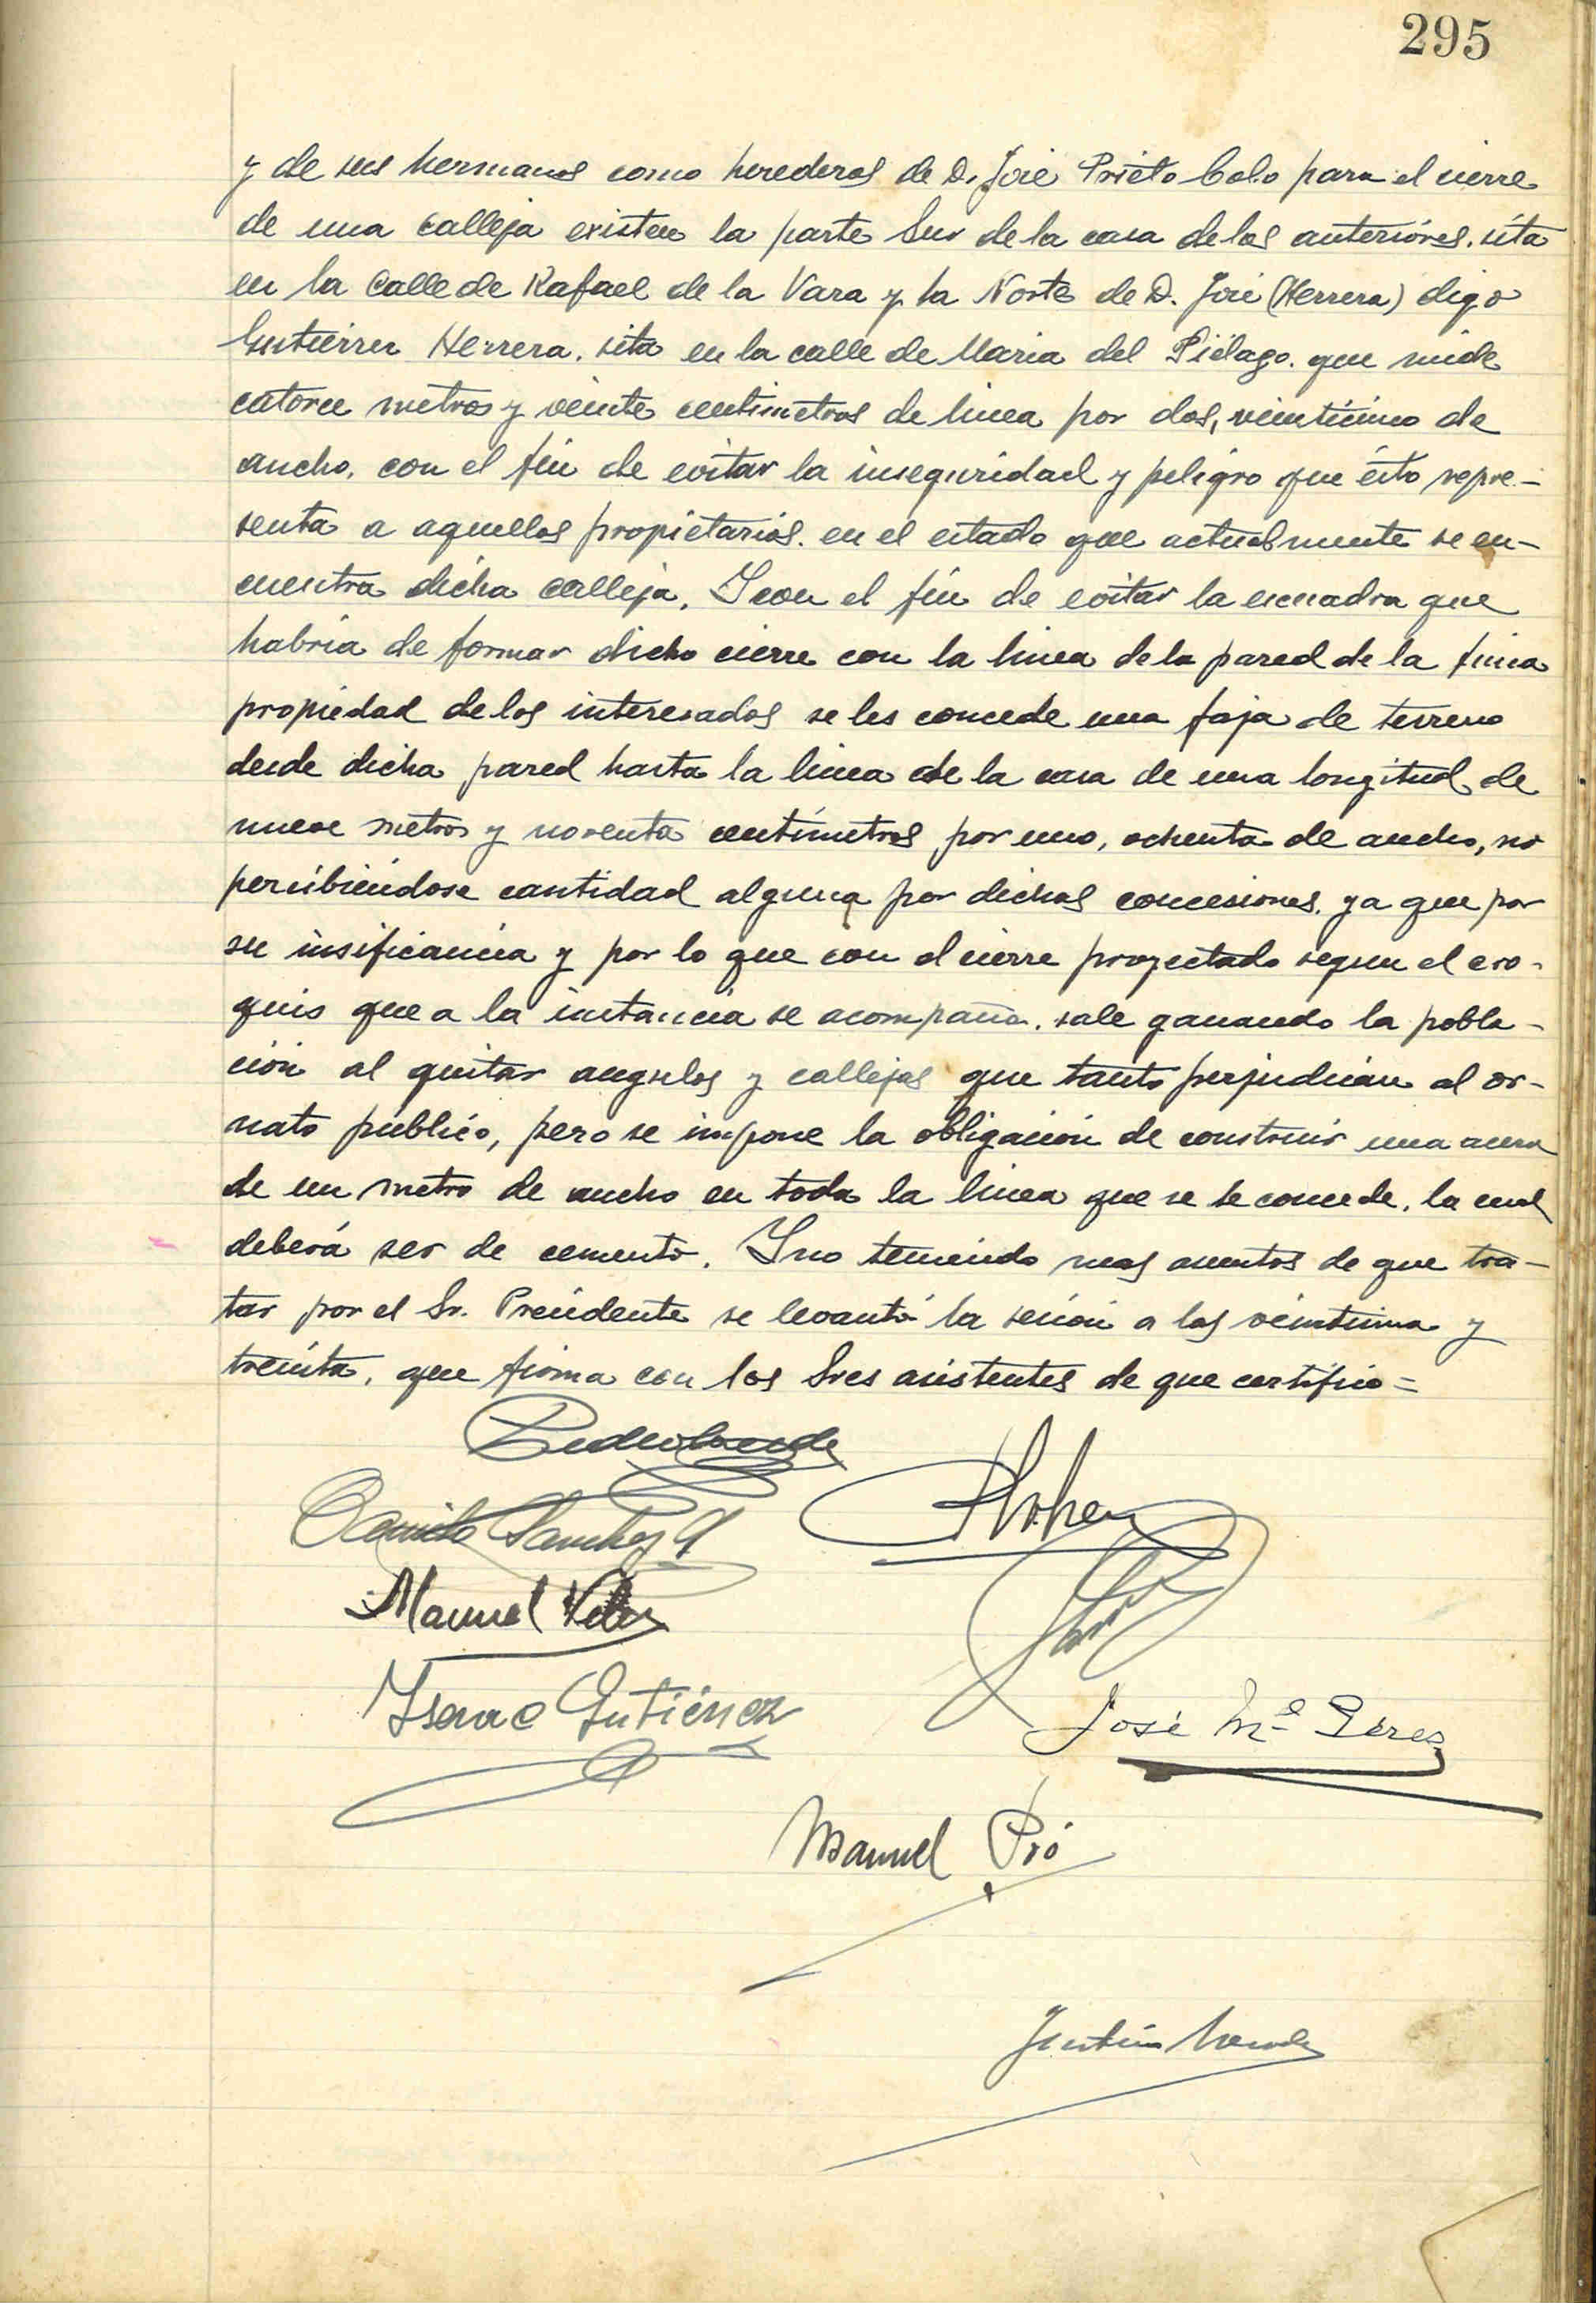 295
y de sus hermanos como herederos de D. José Prieto Cobo para el cierre
de una calleja existen la parte Sur de la casa de los anteriores. sita
en la Calle de Rafael de la Vara y la Norte de D. José (Herrera) digo
Gutierrez Herrera. sita en la calle de Maria del Piélago. que mide
catorce metros y veinte centimetros de linea por dos, veinticinco de
ancho, con el fin de evitar la inseguridad y peligro que ésto repre-
senta a aquellos propietarios. en el estado que actualmente se en-
cuentra dicha calleja. Y con el fin de evitar la escuadra que
habria de formar dicho cierre con la linea de la pared de la finca
propiedad de los interesados se les concede una faja de terreno
desde dicha pared hasta la linea de la casa de una longitud de
nueve metros y noventa centímetros por uno, ochenta de ancho, no
percibiéndose cantidad alguna por dichas concesiones. ya que por
su insificancia y por lo que con el cierre proyectado segun el cro-
quis que a la instancia se acompaña. sale ganando la pobla-
ción al quitar angulos y callejas que tanto perjudican al or-
nato público, pero se impone la obligación de construir una acera
de un metro de ancho en toda la linea que se le concede, la cual
deberá ser de cemento. Y no teniendo mas asuntos de que tra-
tar por el Sr. Presidente se levantó la sesión a las veintiuna y
treinta, que firma con los Sres asistentes de que certifico =
Camilo Sanchez
Manuel Velez
Ysaac Gutiérrez
José Mª Pérez
Manuel Pió